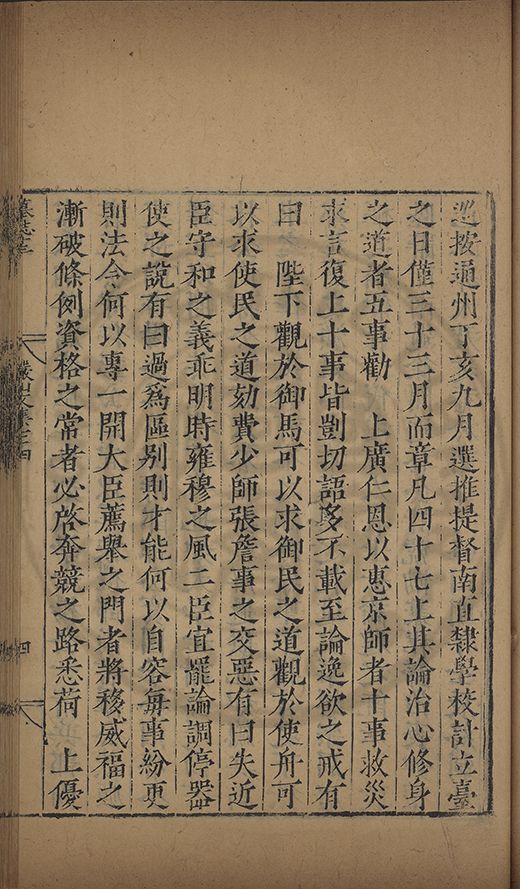 巡按通州丁亥九月選推提督南直隸學校計立臺
之日僅三十三月而章凡四十七上其論治心修身
之道者五事勸　上廣仁恩以惠京師者十事救災
求言復上十事皆剴切語多不載至論逸欲之戒有
曰　陛下觀於御馬可以求御民之道觀於使舟可
以求使民之道劾費少師張詹事之交惡有曰失近
臣守和之義乖明時雍穆之風二臣宜罷論調停器
使之說有曰過爲區别則才能何以自容每事紛更
則法令何以專一開大臣薦舉之門者將移威福之
漸破條例資格之常者必啓奔競之路悉荷　上優
墓志三
四